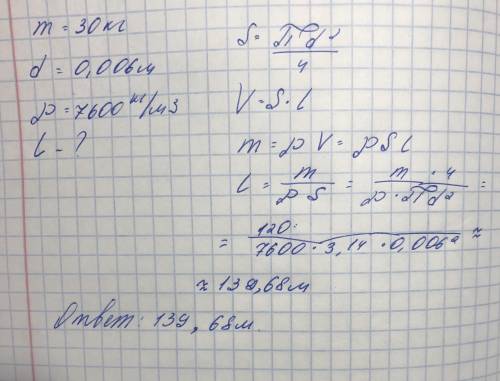 m = 30 кг
d = 0,006 м
ρ = 7600 кг/м3
l - ?
S = πd²/4
V = S · l
m = ρ V = ρ S l
l = m/ρS = m · 4/ρ · πd² =
= 120/7600 · 3,14 · 0,006² ≈
≈ 139,68 м
Ответ: 139,68 м.